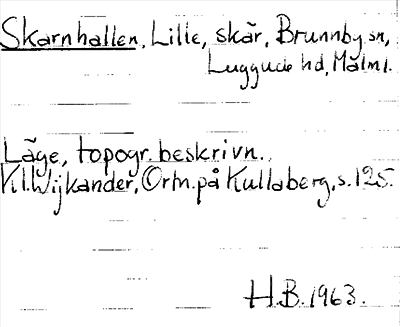 Skarnhallen, Lille, skär, Brunnby sn,
Luggude hd, Malml.
Läge, topogr. beskrivn.
Wijkander, Ortn. på Kullaberg, s. 125.
H.B. 1963.